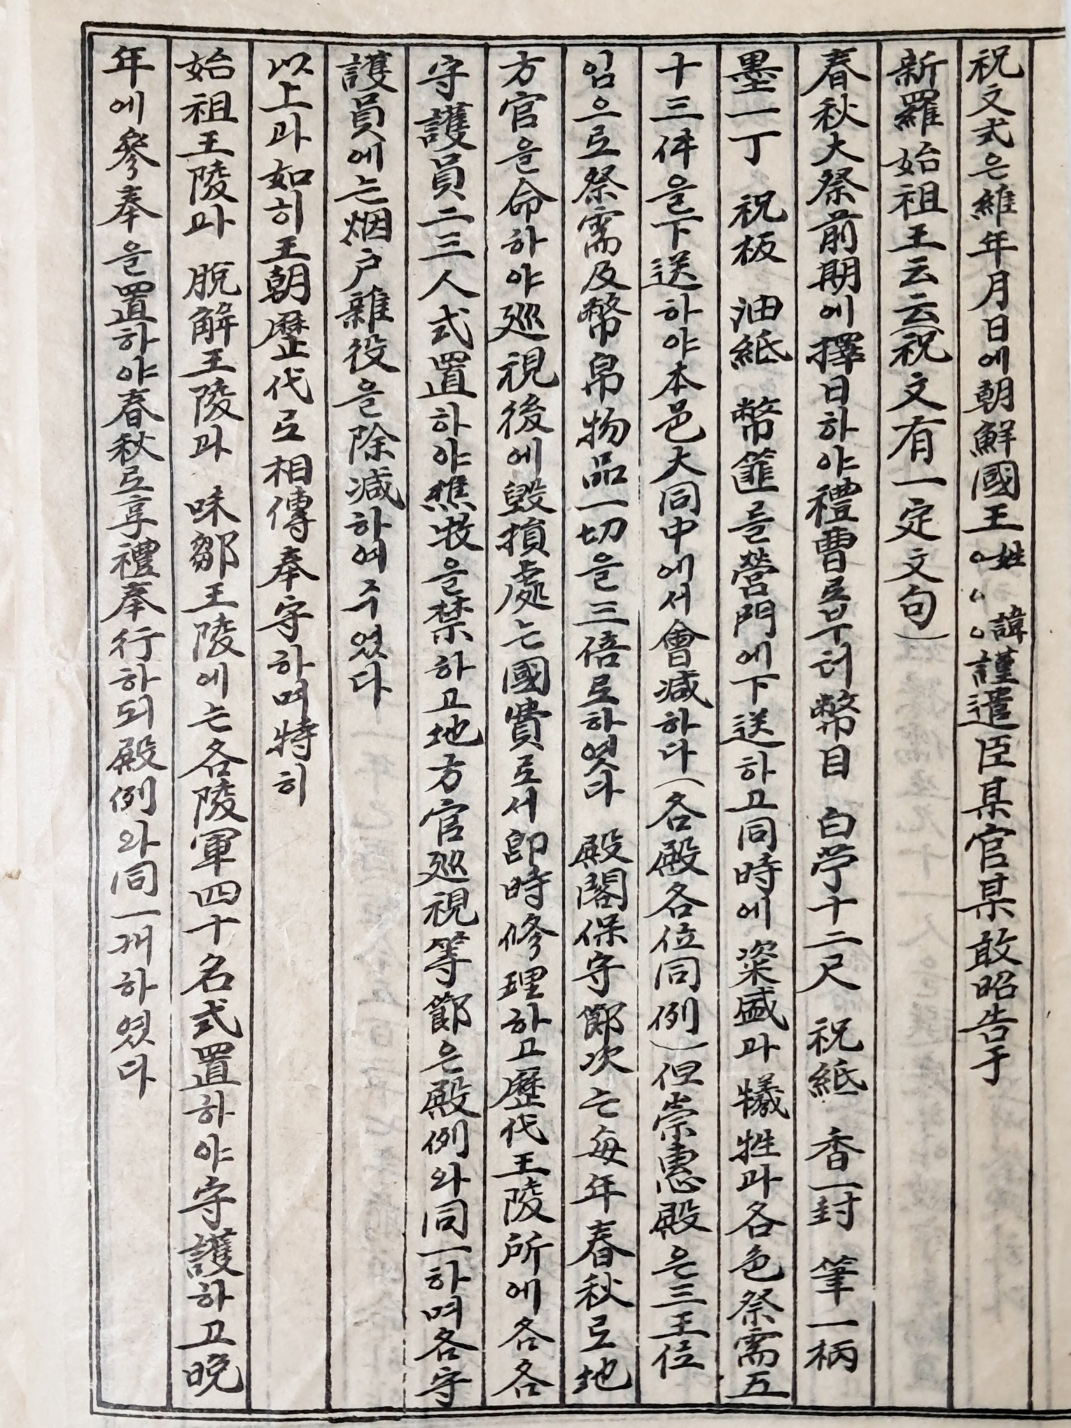 祝文式은維年月日에朝鮮國王姓諱謹遣臣某官某敢昭告于
新羅始祖王云云(祝文有一定文句)
春秋大祭前期에擇日하야禮曹로부터幣目 白苧十二尺 祝紙 香一封 筆一柄
墨一丁 祝板 油紙 幣篚를營門에下送하고同時에粢盛과犧牲과各色祭需五
十三件을下送하야本邑大同中에서會减하다(各殿各位同例)但崇惠殿은三王位
임으로祭需及幣帛物品一切을三倍로하엿다 殿閣保守節次는每年春秋로地
方官을命하야巡視後에毁損處는國費로서卽時修理하고歷代王陵所에各各
守護員二三人式置하야樵牧을禁하고地方官巡視等節은殿例와同一하며各守
護員에는烟户雜役을除减하여주엇다
以上과如히王朝歷代로相傳奉守하며特히
始祖王陵과 脫解王陵과 味鄒王陵에는各陵軍四十名式置하야守護하고晩
年에參奉을置하야春秋로享禮奉行하되殿例와同一개하엿다